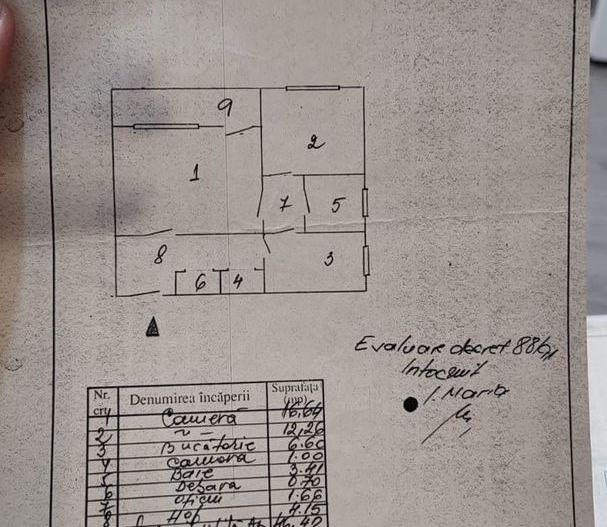 9
2
1
7
5
8
3
6
4
Evaluare decret 886/1
Intocmit
I. Maria
Nr. crt Denumirea încăperii Suprafața (mp)
1 Cameră 16,64
2 ~ — 12,26
3 Bucătărie 6.60
4 Camora 1.00
5 Baie 3.41
6 Debara 0.70
7 Oficiu 1.66
8 Hol 4.15
46.42